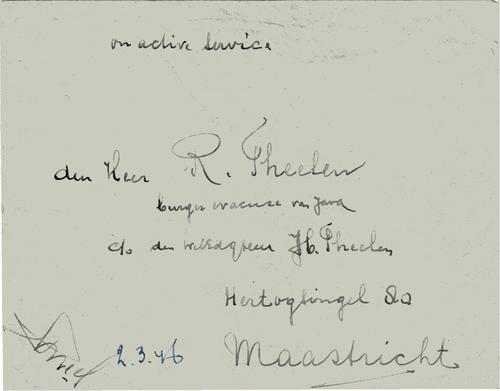 on active service
den Heer R. Theelen
burger evacuee van Java
c/o den weledgheer H. Theelen
Hertogsingel 80
2.3.46 Maastricht